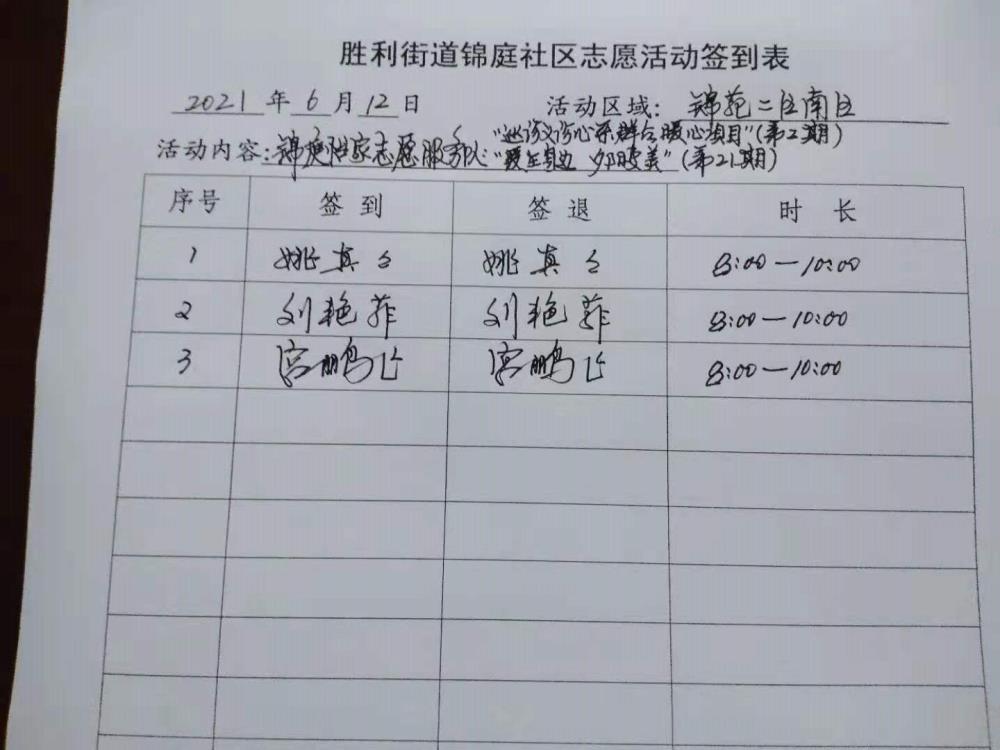 胜利街道锦庭社区志愿活动签到表
2021 年 6 月 12 日 活动区域: 锦苑二区南区
"谈心 暖心项目"(第2期)
活动内容: 锦庭 家志愿服务队: 夕阳 美"(第21期)
序号 签到 签退 时 长
1 姚真 姚真 8:00—10:00
2 刘艳菲 刘艳菲 8:00—10:00
3 宫鹏飞 宫鹏飞 8:00—10:00